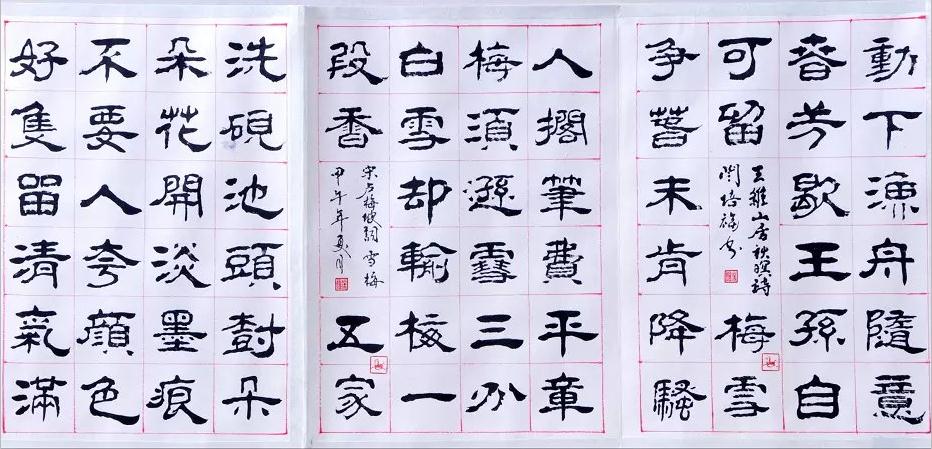 動下漁舟隨意
春芳歇王孫自
可留
王維山居秋暝詩
関培福书
梅雪
爭春未肯降騷
人擱筆費平章
梅須遜雪三分
白雪却輸梅一
段香
宋卢梅坡詞 雪梅
甲午年夏月
五家
洗硯池頭對朵
朵花開淡墨痕
不要人夸顏色
好隻留清氣滿